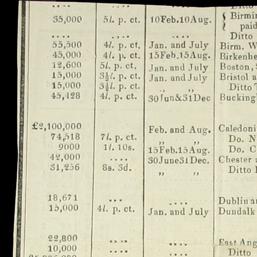 .... .... .... Ditto
35,000 5l. p. ct. 10Feb.10Aug. { Birmin
paid
.... .... .... Ditto
55,500 4l. p. ct. Jan. and July Birm. W
45,000 4l. p. ct. 15Feb.15Aug. Birkenhe
12,600 5l. p. ct. Jan. and July Boston,
15,000 3½l. p. ct. Jan. and July Bristol a
15,000 3½l. p. ct. .... Ditto
45,428 4l. p. ct. 30Jun&31Dec Bucking
£2,100,000 .... Feb. and Aug. Caledoni
74,518 7l. p. ct. „ „ Do. N
9000 1l. 10s. 15Feb.15Aug. Do. C
42,000 .... 30June31Dec. Chester a
31,256 8s. 3d. „ „ Ditto
18,671 .... .... Dublin an
15,000 4l. p. ct. Jan. and July Dundalk
22,800 .... .... East Ang
10,000 .... .... Ditto